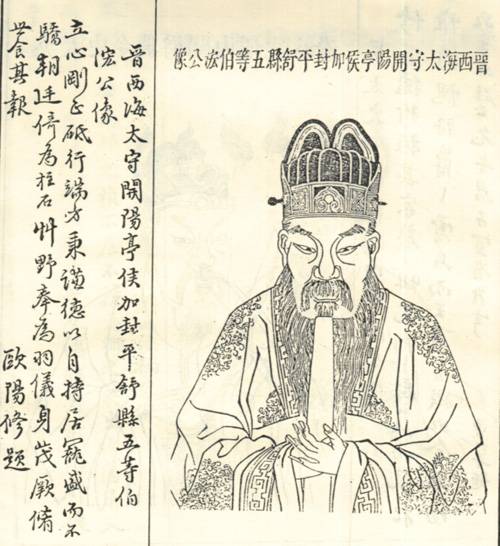 晉西海太守開陽亭侯加封平舒縣五等伯浤公像
晉西海太守開陽亭侯加封平舒縣五等伯
浤公像
立心剛正砥行端方秉謙德以自持居寵盛而不
驕朝廷倚為柱石艸野奉為羽儀身茂厥脩
世食其報
歐陽修題